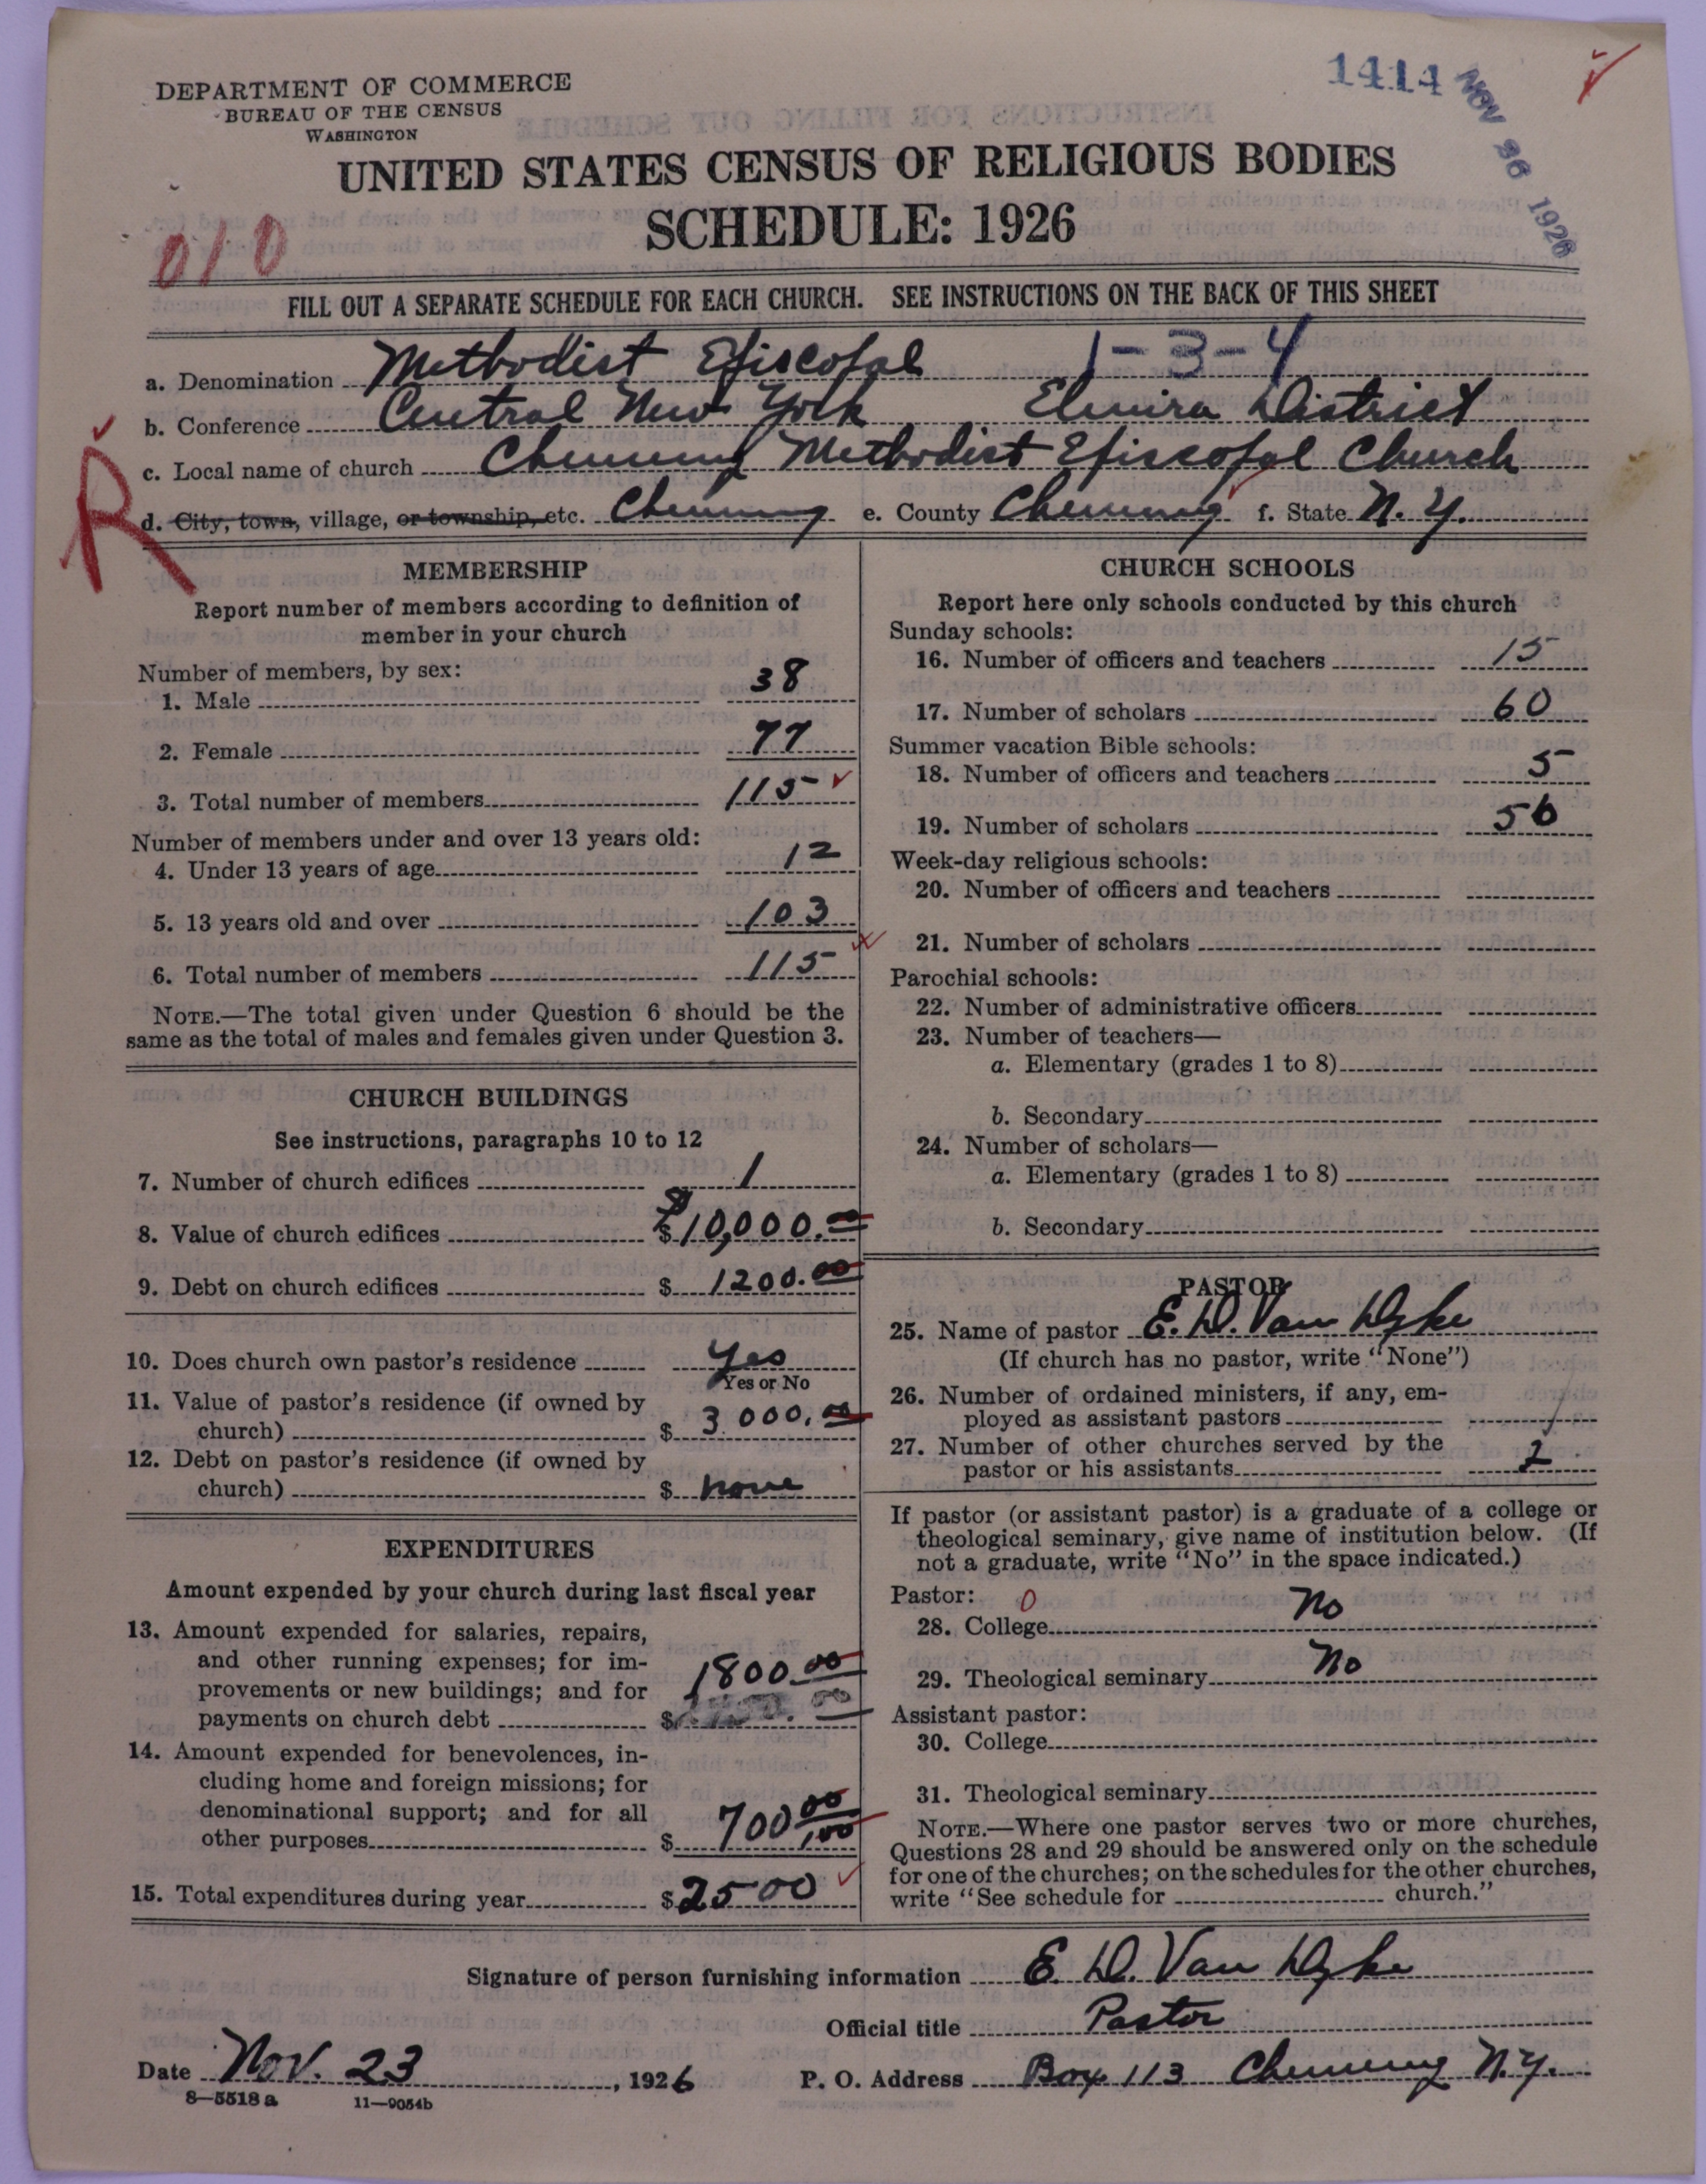 DEPARTMENT OF COMMERCE
BUREAU OF THE CENSUS
WASHINGTON
1414 NOV 26 1926
UNITED STATES CENSUS OF RELIGIOUS BODIES
SCHEDULE: 1926
010
FILL OUT A SEPARATE SCHEDULE FOR EACH CHURCH. SEE INSTRUCTIONS ON THE BACK OF THIS SHEET
a. Denomination Methodist Episcopal 1-3-4
b. Conference Central New York Elmira District
c. Local name of church Chemung Methodist Episcopal Church
R
d. City, town, village, or township, etc. Chemung e. County Chemung f. State N.Y.
MEMBERSHIP
Report number of members according to definition of
member in your church
Number of members, by sex:
1. Male 38
2. Female 77
3. Total number of members 115
Number of members under and over 13 years old:
4. Under 13 years of age 12
5. 13 years old and over 103
6. Total number of members 115
NOTE.—The total given under Question 6 should be the
same as the total of males and females given under Question 3.
CHURCH BUILDINGS
See instructions, paragraphs 10 to 12
7. Number of church edifices 1
8. Value of church edifices $10,000.00
9. Debt on church edifices $ 1200.00
10. Does church own pastor's residence Yes
Yes or No
11. Value of pastor's residence (if owned by
church) $ 3000.00
12. Debt on pastor's residence (if owned by
church) $ none
EXPENDITURES
Amount expended by your church during last fiscal year
13. Amount expended for salaries, repairs,
and other running expenses; for im-
provements or new buildings; and for 1800.00
payments on church debt $
14. Amount expended for benevolences, in-
cluding home and foreign missions; for
denominational support; and for all
other purposes $ 700.00
15. Total expenditures during year $2500
CHURCH SCHOOLS
Report here only schools conducted by this church
Sunday schools:
16. Number of officers and teachers 15
17. Number of scholars 60
Summer vacation Bible schools:
18. Number of officers and teachers 5
19. Number of scholars 56
Week-day religious schools:
20. Number of officers and teachers
21. Number of scholars
Parochial schools:
22. Number of administrative officers
23. Number of teachers—
a. Elementary (grades 1 to 8)
b. Secondary
24. Number of scholars—
a. Elementary (grades 1 to 8)
b. Secondary
PASTOR
25. Name of pastor E. D. Van Dyke
(If church has no pastor, write "None")
26. Number of ordained ministers, if any, em-
ployed as assistant pastors
27. Number of other churches served by the
pastor or his assistants 2
If pastor (or assistant pastor) is a graduate of a college or
theological seminary, give name of institution below. (If
not a graduate, write "No" in the space indicated.)
Pastor: 0
28. College No
29. Theological seminary No
Assistant pastor:
30. College
31. Theological seminary
NOTE.—Where one pastor serves two or more churches,
Questions 28 and 29 should be answered only on the schedule
for one of the churches; on the schedules for the other churches,
write "See schedule for church."
Signature of person furnishing information E. D. Van Dyke
Official title Pastor
Date Nov. 23, 1926 P. O. Address Box 113 Chemung N.Y.
8—5518a 11—9054b